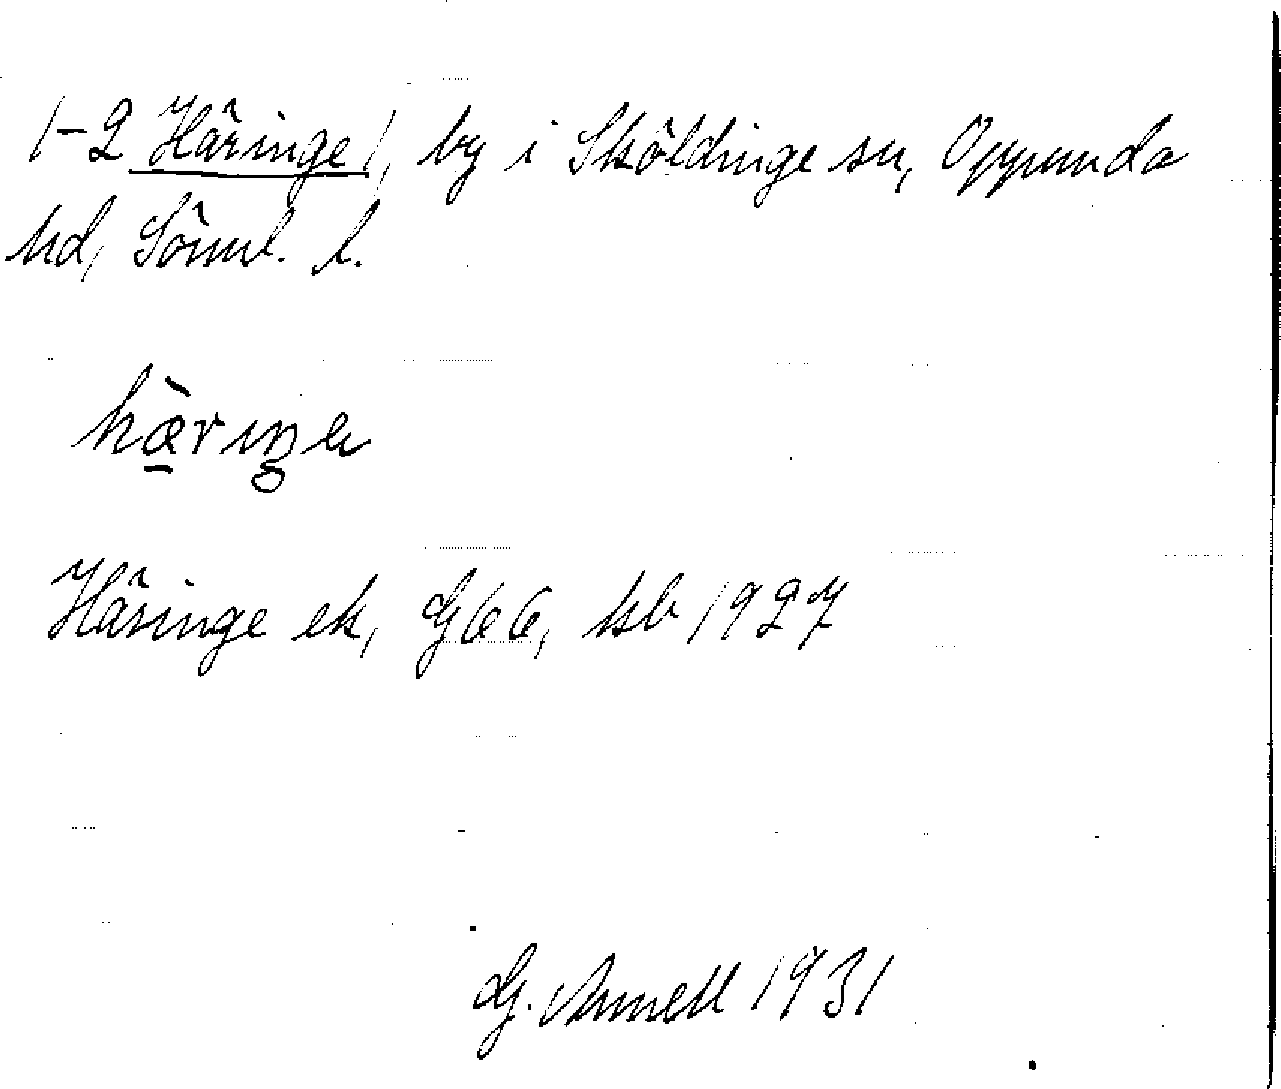 1-2 Häringe /, by i Sköldinge sn, Oppunda
hd, Söml. l.
hæ̀riŋe
Häringe ek, G66, hsb 1927
G. Annell 1931